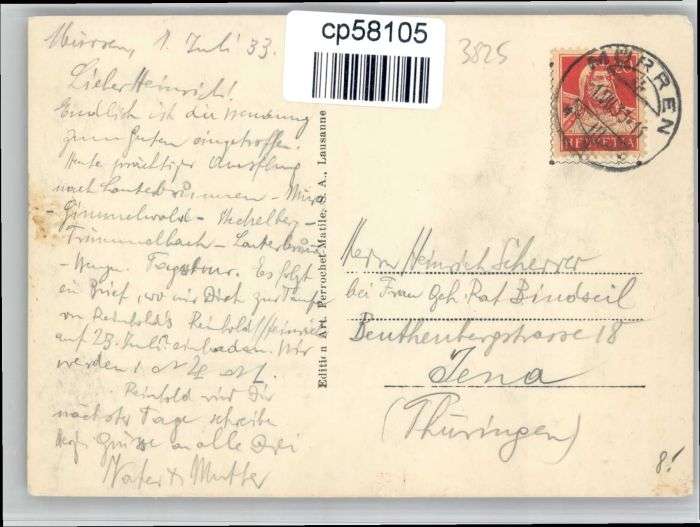 cp58105
3825
Mürren, 1. Juli 33.
Lieber Heinrich!
Endlich ist die Wendung
zum Guten eingetroffen.
Heute prächtiger Ausflug
nach Lauterbrunnen - Mürren
Gimmelwald -
Trümmelbach - Lauterbrunnen
- Wengen. Es folgt
ein Brief, wo wir Dich zur Taufe
von Reinholds Reinhold Heinrich
auf 23. Juli einladen. Wir
werden
Reinhold wird Dir
nächster Tage schreiben
Herzl. Grüsse an alle Drei
Vater & Mutter
Edition Art. Perrochet-Matile, S. A., Lausanne
MÜRREN
HELVETIA
Herrn Heinrich Scherrer
bei Frau Geh. Rat Bindseil
Beuthenbergstrasse 18
Jena
(Thüringen)
8!